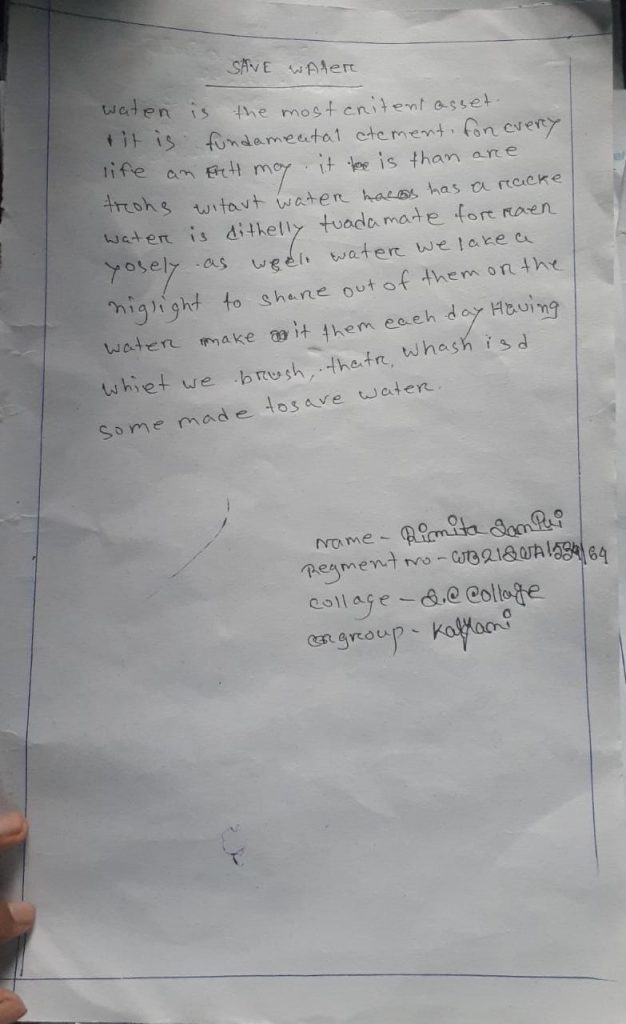 SAVE WATER
water is the most critenl asset.
it is fundamental etement. for every
life an Erth may. it is than are
trohs witavt water has a racke
water is dithelly tuadamate fore raen
yosely as well water we lake a
niglight to share out of them on the
water make it them each day Having
whiet we brush, thatr, whash isd
some made to save water.
Name -
Regment no -
collage - S.C College
group - Kalyani